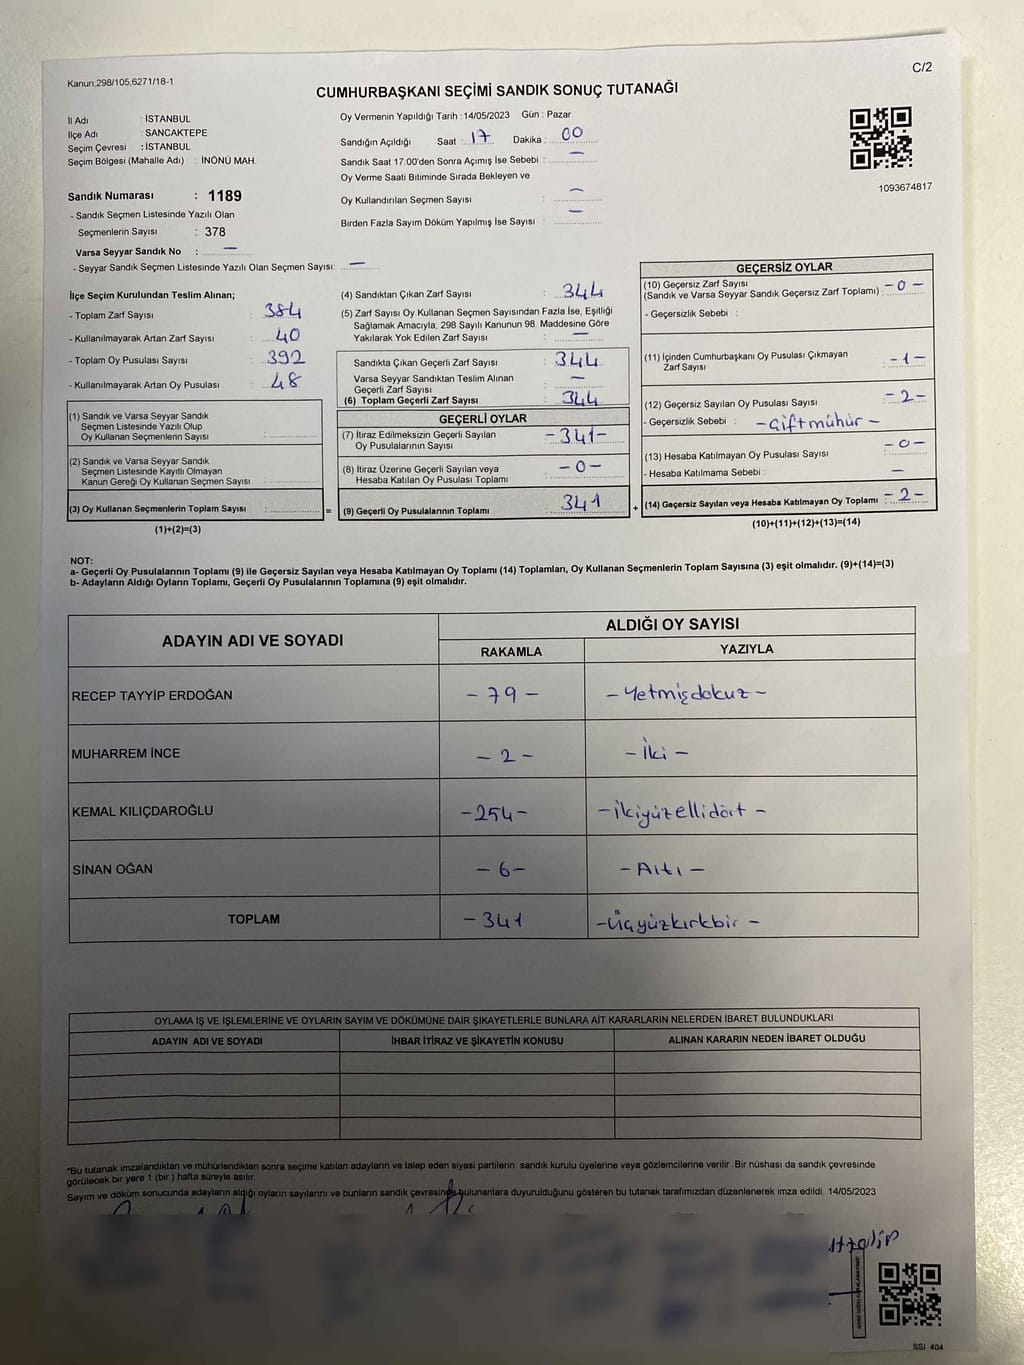 Kanun,298/105,6271/18-1
C/2
CUMHURBAŞKANI SEÇİMİ SANDIK SONUÇ TUTANAĞI
İl Adı : İSTANBUL
İlçe Adı : SANCAKTEPE
Seçim Çevresi : İSTANBUL
Seçim Bölgesi (Mahalle Adı) : İNÖNÜ MAH.
Sandık Numarası : 1189
- Sandık Seçmen Listesinde Yazılı Olan
Seçmenlerin Sayısı : 378
Varsa Seyyar Sandık No : —
- Seyyar Sandık Seçmen Listesinde Yazılı Olan Seçmen Sayısı: —
Oy Vermenin Yapıldığı Tarih :14/05/2023 Gün : Pazar
Sandığın Açıldığı Saat : 17 Dakika : 00
Sandık Saat 17:00'den Sonra Açımış İse Sebebi : —
Oy Verme Saati Bitiminde Sırada Bekleyen ve
Oy Kullandırılan Seçmen Sayısı : —
Birden Fazla Sayım Döküm Yapılmış İse Sayısı : —
1093674817
İlçe Seçim Kurulundan Teslim Alınan;
- Toplam Zarf Sayısı : 384
- Kullanılmayarak Artan Zarf Sayısı : 40
- Toplam Oy Pusulası Sayısı : 392
- Kullanılmayarak Artan Oy Pusulası : 48
(1) Sandık ve Varsa Seyyar Sandık
Seçmen Listesinde Yazılı Olup
Oy Kullanan Seçmenlerin Sayısı :
(2) Sandık ve Varsa Seyyar Sandık
Seçmen Listesinde Kayıtlı Olmayan
Kanun Gereği Oy Kullanan Seçmen Sayısı :
(3) Oy Kullanan Seçmenlerin Toplam Sayısı : =
(1)+(2)=(3)
(4) Sandıktan Çıkan Zarf Sayısı : 344
(5) Zarf Sayısı Oy Kullanan Seçmen Sayısından Fazla İse, Eşitliği
Sağlamak Amacıyla; 298 Sayılı Kanunun 98. Maddesine Göre
Yakılarak Yok Edilen Zarf Sayısı : —
Sandıkta Çıkan Geçerli Zarf Sayısı : 344
Varsa Seyyar Sandıktan Teslim Alınan
Geçerli Zarf Sayısı : —
(6) Toplam Geçerli Zarf Sayısı : 344
GEÇERLİ OYLAR
(7) İtiraz Edilmeksizin Geçerli Sayılan
Oy Pusulalarının Sayısı : -341-
(8) İtiraz Üzerine Geçerli Sayılan veya
Hesaba Katılan Oy Pusulası Toplamı : -0-
(9) Geçerli Oy Pusulalarının Toplamı : 341 +
GEÇERSİZ OYLAR
(10) Geçersiz Zarf Sayısı
(Sandık ve Varsa Seyyar Sandık Geçersiz Zarf Toplamı) : -0-
- Geçersizlik Sebebi :
(11) İçinden Cumhurbaşkanı Oy Pusulası Çıkmayan
Zarf Sayısı : -1-
(12) Geçersiz Sayılan Oy Pusulası Sayısı : -2-
- Geçersizlik Sebebi : -Çift mühür -
(13) Hesaba Katılmayan Oy Pusulası Sayısı : -0-
- Hesaba Katılmama Sebebi : —
(14) Geçersiz Sayılan veya Hesaba Katılmayan Oy Toplamı : -2-
(10)+(11)+(12)+(13)=(14)
NOT:
a- Geçerli Oy Pusulalarının Toplamı (9) ile Geçersiz Sayılan veya Hesaba Katılmayan Oy Toplamı (14) Toplamları, Oy Kullanan Seçmenlerin Toplam Sayısına (3) eşit olmalıdır. (9)+(14)=(3)
b- Adayların Aldığı Oyların Toplamı, Geçerli Oy Pusulalarının Toplamına (9) eşit olmalıdır.
ADAYIN ADI VE SOYADI ALDIĞI OY SAYISI
RAKAMLA YAZIYLA
RECEP TAYYİP ERDOĞAN - 79 - - Yetmişdokuz -
MUHARREM İNCE - 2 - - İki -
KEMAL KILIÇDAROĞLU -254- - İkiyüzellidört -
SİNAN OĞAN - 6 - - Altı -
TOPLAM - 341 - Üçyüzkırkbir -
OYLAMA İŞ VE İŞLEMLERİNE VE OYLARIN SAYIM VE DÖKÜMÜNE DAİR ŞİKAYETLERLE BUNLARA AİT KARARLARIN NELERDEN İBARET BULUNDUKLARI
ADAYIN ADI VE SOYADI İHBAR İTİRAZ VE ŞİKAYETİN KONUSU ALINAN KARARIN NEDEN İBARET OLDUĞU
"Bu tutanak imzalandıktan ve mühürlendikten sonra seçime katılan adayların ve talep eden siyasi partilerin sandık kurulu üyelerine veya gözlemcilerine verilir. Bir nüshası da sandık çevresinde
görülecek bir yere 1 (bir ) hafta süreyle asılır.
Sayım ve döküm sonucunda adayların aldığı oyların sayılarını ve bunların sandık çevresinde bulunanlara duyurulduğunu gösteren bu tutanak tarafımızdan düzenlenerek imza edildi. 14/05/2023
SSI 404